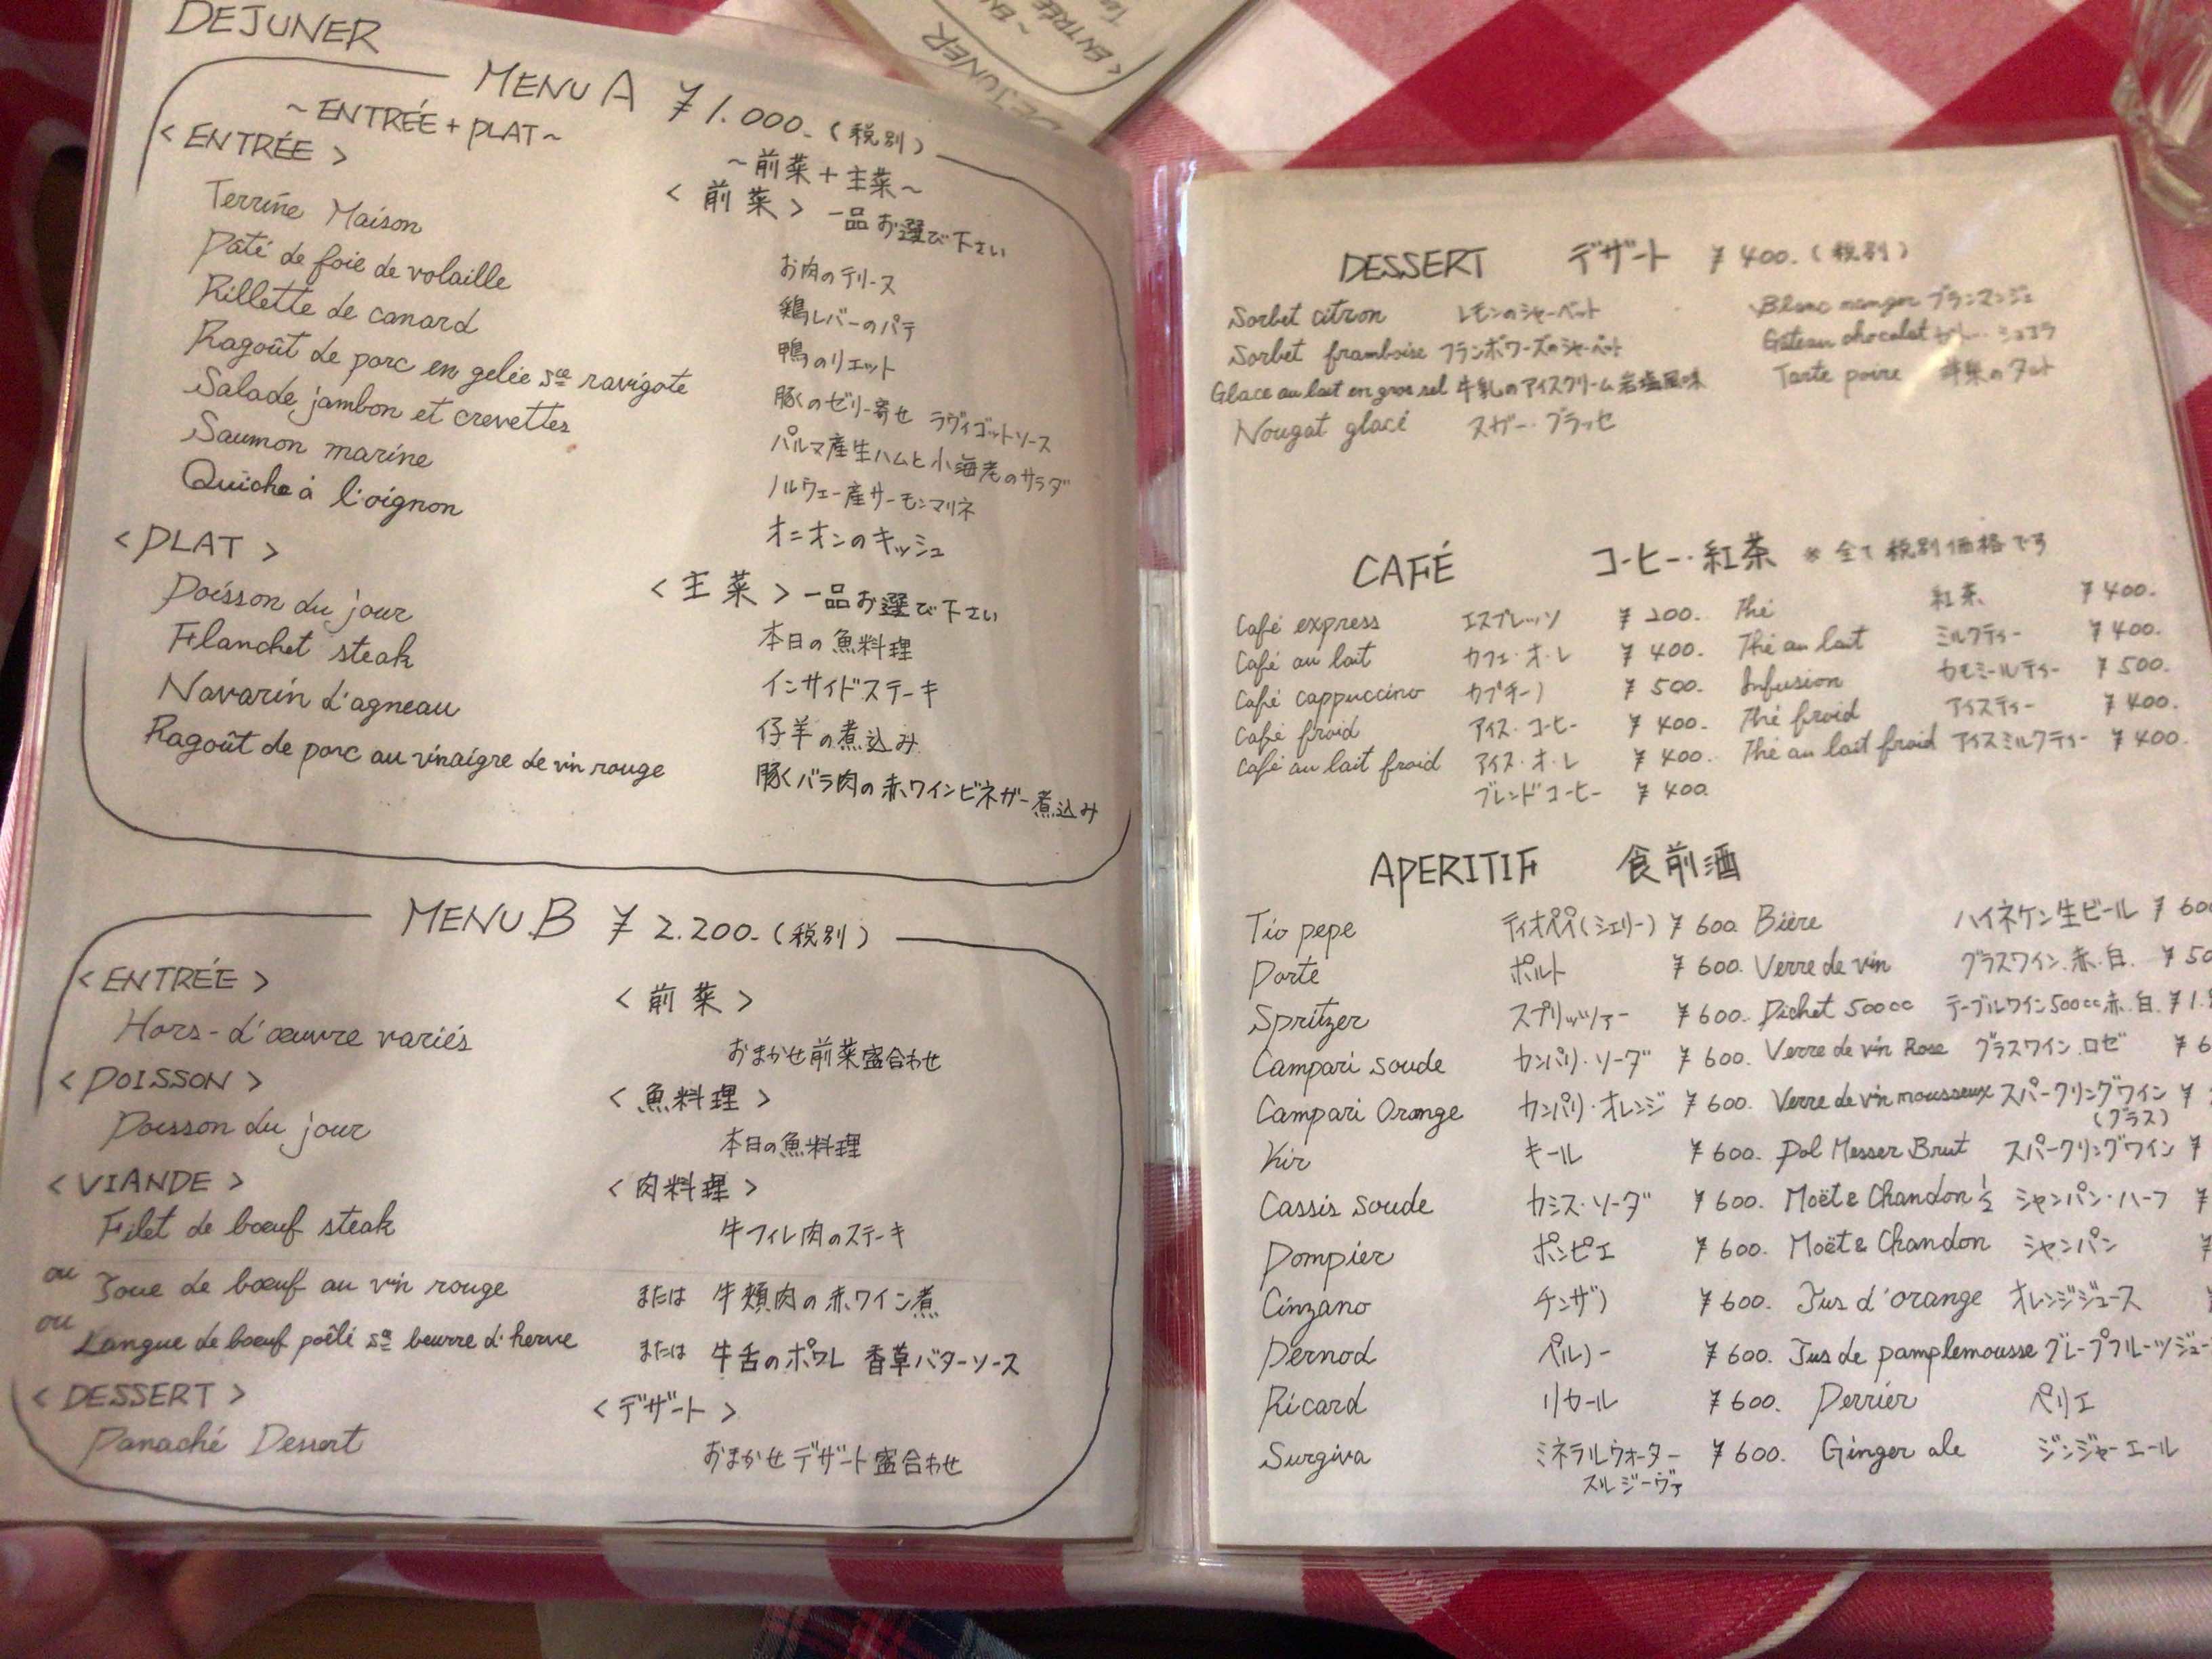 DEJUNER
MENU A ¥1.000.(税別)
~ENTRÉE+PLAT~ ~前菜+主菜~
<ENTRÉE> <前菜> 一品お選び下さい
Terrine Maison お肉のテリーヌ
Pâté de foie de volaille 鶏レバーのパテ
Rillette de canard 鴨のリエット
Ragoût de porc en gelée sce ravigote 豚のゼリー寄せ ラヴィゴットソース
Salade jambon et crevettes パルマ産生ハムと小海老のサラダ
Saumon marine ノルウェー産サーモンマリネ
Quiche à l'oignon オニオンのキッシュ
<PLAT> <主菜> 一品お選び下さい
Poisson du jour 本日の魚料理
Flanchet steak インサイドステーキ
Navarin d'agneau 仔羊の煮込み
Ragoût de porc au vinaigre de vin rouge 豚バラ肉の赤ワインビネガー煮込み
MENU.B ¥2.200.(税別)
<ENTRÉE> <前菜>
Hors-d'œuvre variés おまかせ前菜盛合わせ
<POISSON> <魚料理>
Poisson du jour 本日の魚料理
<VIANDE> <肉料理>
Filet de bœuf steak 牛フィレ肉のステーキ
ou Joue de bœuf au vin rouge または 牛頬肉の赤ワイン煮
ou Langue de bœuf poêlé sce beurre d'herve または 牛舌のポワレ 香草バターソース
<DESSERT> <デザート>
Panaché Dessert おまかせデザート盛合わせ
DESSERT デザート ¥400.(税別)
Sorbet citron レモンのシャーベット Blanc manger ブランマンジェ
Sorbet framboise フランボワーズのシャーベット Gateau chocolat ショコラ
Glace au lait en gros sel 牛乳のアイスクリーム岩塩風味 Tarte poire 洋梨のタルト
Nougat glacé ヌガー・グラッセ
CAFÉ コーヒー・紅茶 ※全て税別価格です
Café express エスプレッソ ¥200. Thé 紅茶 ¥400.
Café au lait カフェ・オ・レ ¥400. Thé au lait ミルクティー ¥400.
Café cappuccino カプチーノ ¥500. Infusion カモミールティー ¥500.
Café froid アイス・コーヒー ¥400. Thé froid アイスティー ¥400.
Café au lait froid アイス・オ・レ ¥400. Thé au lait froid アイスミルクティー ¥400.
ブレンドコーヒー ¥400
APERITIF 食前酒
Tio pepe ティオペペ(シェリー) ¥600. Bière ハイネケン生ビール ¥600
Porte ポルト ¥600. Verre de vin グラスワイン.赤.白. ¥50
Spritzer スプリッツァー ¥600. Pichet 500cc テーブルワイン500cc赤.白. ¥1.
Campari soude カンパリ・ソーダ ¥600. Verre de vin Rose グラスワイン.ロゼ ¥6
Campari Orange カンパリ・オレンジ ¥600. Verre de vin mousseux スパークリングワイン ¥
(グラス)
Kir キール ¥600. Pol Messer Brut スパークリングワイン ¥
Cassis soude カシス・ソーダ ¥600. Moët & Chandon ½ シャンパン・ハーフ ¥
Pompier ポンピエ ¥600. Moët & Chandon シャンパン ¥
Cinzano チンザノ ¥600. Jus d'orange オレンジジュース
Pernod ペルノー ¥600. Jus de pamplemousse グレープフルーツジュー
Ricard リカール ¥600. Perrier ペリエ
Surgiva ミネラルウォーター ¥600. Ginger ale ジンジャーエール
スルジーヴァ